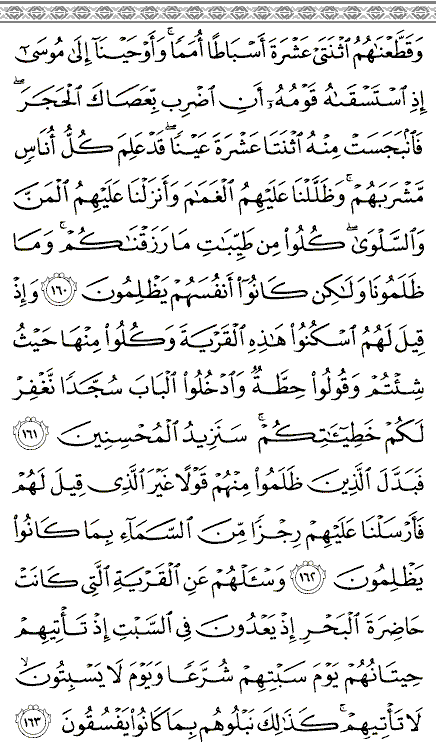 وَقَطَّعْنَٰهُمُ ٱثْنَتَىْ عَشْرَةَ أَسْبَاطًا أُمَمًا ۚ وَأَوْحَيْنَآ إِلَىٰ مُوسَىٰٓ
إِذِ ٱسْتَسْقَىٰهُ قَوْمُهُۥٓ أَنِ ٱضْرِب بِّعَصَاكَ ٱلْحَجَرَ ۖ
فَٱنۢبَجَسَتْ مِنْهُ ٱثْنَتَا عَشْرَةَ عَيْنًا ۖ قَدْ عَلِمَ كُلُّ أُنَاسٍ
مَّشْرَبَهُمْ ۚ وَظَلَّلْنَا عَلَيْهِمُ ٱلْغَمَٰمَ وَأَنزَلْنَا عَلَيْهِمُ ٱلْمَنَّ
وَٱلسَّلْوَىٰ ۖ كُلُوا۟ مِن طَيِّبَٰتِ مَا رَزَقْنَٰكُمْ ۚ وَمَا
ظَلَمُونَا وَلَٰكِن كَانُوٓا۟ أَنفُسَهُمْ يَظْلِمُونَ ١٦٠ وَإِذْ
قِيلَ لَهُمُ ٱسْكُنُوا۟ هَٰذِهِ ٱلْقَرْيَةَ وَكُلُوا۟ مِنْهَا حَيْثُ
شِئْتُمْ وَقُولُوا۟ حِطَّةٌ وَٱدْخُلُوا۟ ٱلْبَابَ سُجَّدًا نَّغْفِرْ
لَكُمْ خَطِيٓـَٰٔتِكُمْ ۚ سَنَزِيدُ ٱلْمُحْسِنِينَ ١٦١
فَبَدَّلَ ٱلَّذِينَ ظَلَمُوا۟ مِنْهُمْ قَوْلًا غَيْرَ ٱلَّذِى قِيلَ لَهُمْ
فَأَرْسَلْنَا عَلَيْهِمْ رِجْزًا مِّنَ ٱلسَّمَآءِ بِمَا كَانُوا۟
يَظْلِمُونَ ١٦٢ وَسْـَٔلْهُمْ عَنِ ٱلْقَرْيَةِ ٱلَّتِى كَانَتْ
حَاضِرَةَ ٱلْبَحْرِ إِذْ يَعْدُونَ فِى ٱلسَّبْتِ إِذْ تَأْتِيهِمْ
حِيتَانُهُمْ يَوْمَ سَبْتِهِمْ شُرَّعًا وَيَوْمَ لَا يَسْبِتُونَ ۙ
لَا تَأْتِيهِمْ ۚ كَذَٰلِكَ نَبْلُوهُم بِمَا كَانُوا۟ يَفْسُقُونَ ١٦٣